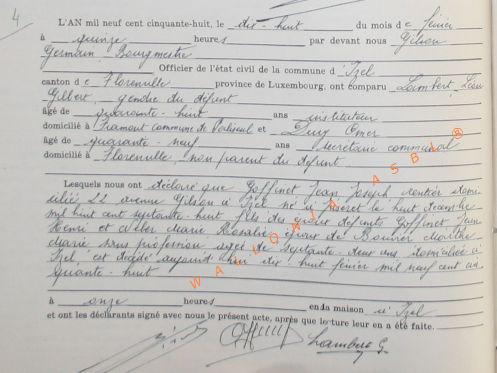 4
L'AN mil neuf cent cinquante-huit, le dix-huit du mois de février
à quinze heures par devant nous Gilson
Germain, Bourgmestre
Officier de l'état civil de la commune d'Izel
canton de Florenville province de Luxembourg, ont comparu Lambert, Léon
Gilbert, gendre du défunt
âgé de quarante-huit ans instituteur
domicilié à Pramont commune de et Dury Omer
âgé de quarante-neuf ans secrétaire communal
domicilié à Florenville, non parent du défunt
Lesquels nous ont déclaré que Goffinet Jean Joseph rentier domi-
cilié 22 avenue Gilson à Izel né à le huit décembre
mil huit cent septante-huit, fils des époux défunts Goffinet Jean
Henri et Marie Rosalie, époux de Marthe
Marie, sans profession, âgée de septante-deux ans, domiciliée à
Izel, est décédé aujourd'hui dix-huit février mil neuf cent cin-
quante-huit
à onze heures en da maison à Izel
et ont les déclarants signé avec nous le présent acte, après que lecture leur en a été faite.
Lambert G.
WALLONIA ASBL ®